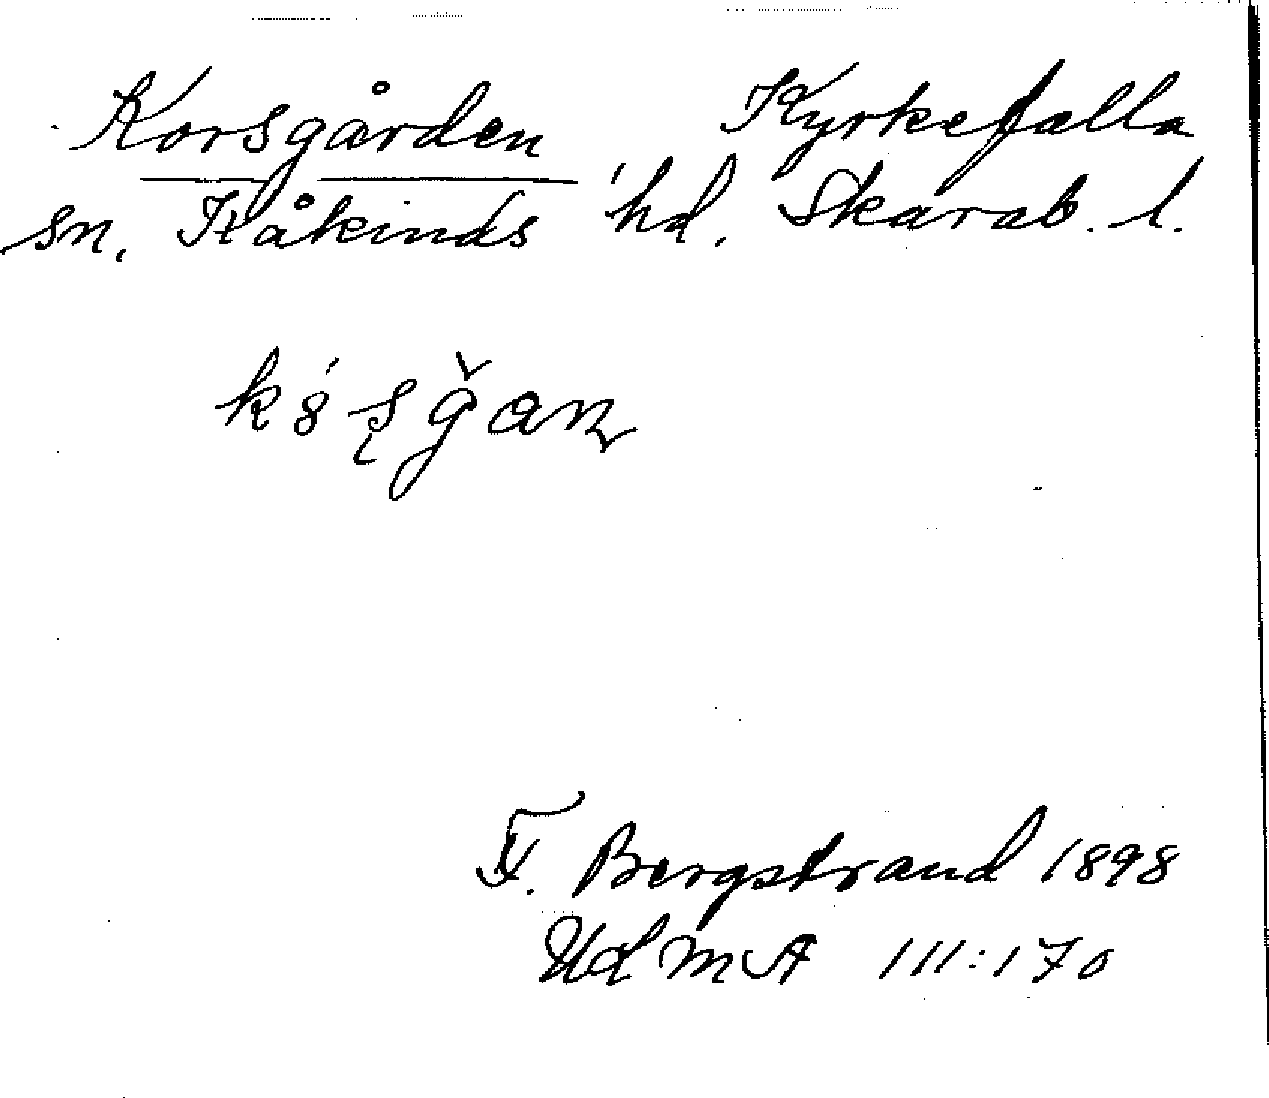 Korsgården Kyrkefalla
sn. Kåkinds hd. Skarab. l.
F. Bergstrand 1898
Ud m A 111:170